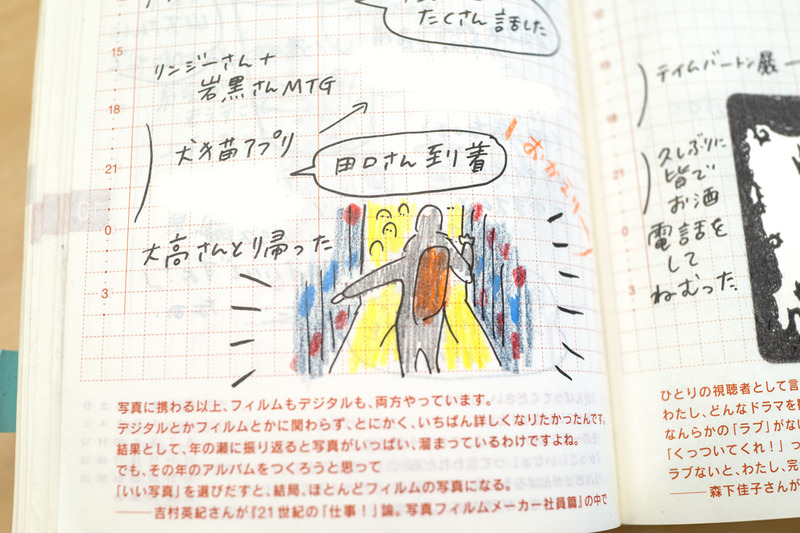 たくさん話した
15
リンジーさん+
岩黒さんMTG
18
犬猫アプリ
21
田口さん到着
おかえりー
0
大高さんとり帰った
3
写真に携わる以上、フィルムもデジタルも、両方やっています。
デジタルとかフィルムとかに関わらず、とにかく、いちばん詳しくなりたかったんです。
結果として、年の瀬に振り返ると写真がいっぱい、溜まっているわけですよね。
でも、その年のアルバムをつくろうと思って
「いい写真」を選びだすと、結局、ほとんどフィルムの写真になる。
——吉村英紀さんが『21世紀の「仕事!」論。写真フィルムメーカー社員篇』の中で
18
ティムバートン展
21
久しぶりに
皆で
お酒
0
電話を
して
3
ねむった
ひとりの視聴者として言
わたし、どんなドラマを
なんらかの「ラブ」がな
「くっついてくれ!」っ
ラブないと、わたし、完
——森下佳子さんが